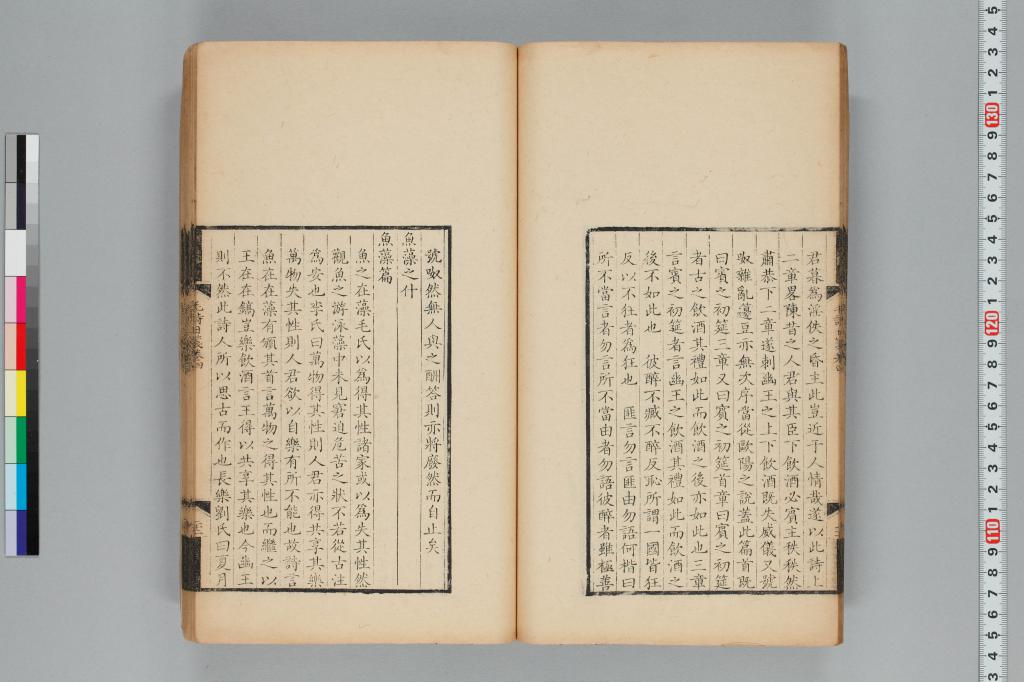 君暮為淫佚之昏主此豈近于人情哉遂以此詩上
二章畧陳昔之人君與其臣下飲酒必賓主秩秩然
肅恭下二章遂刺幽王之上下飲酒既失威儀又號
呶雜亂籩豆亦無次序當從歐陽之說蓋此篇首既
曰賓之初筵三章又曰賓之初筵首章曰賓之初筵
者古之飲酒其禮如此而飲酒之後亦如此也三章
言賓之初筵者言幽王之飲酒其禮如此而飲酒之
後不如此也 彼醉不臧不醉反恥所謂一國皆狂
反以不狂者為狂也 匪言勿言匪由勿語何楷曰
所不當言者勿言所不當由者勿語彼醉者雖極善
號呶然無人與之酬答則亦將廢然而自止矣
魚藻之什
魚藻篇
魚之在藻毛氏以為得其性諸家或以為失其性然
觀魚之游泳藻中未見窘迫危苦之狀不若從古注
為安也李氏曰萬物得其性則人君亦得共享其樂
萬物失其性則人君欲以自樂有所不能也故詩言
魚在在藻有頒其首言萬物之得其性也而繼之以
王在在鎬豈樂飲酒言王得以共享其樂也今幽王
則不然此詩人所以思古而作也長樂劉氏曰夏月